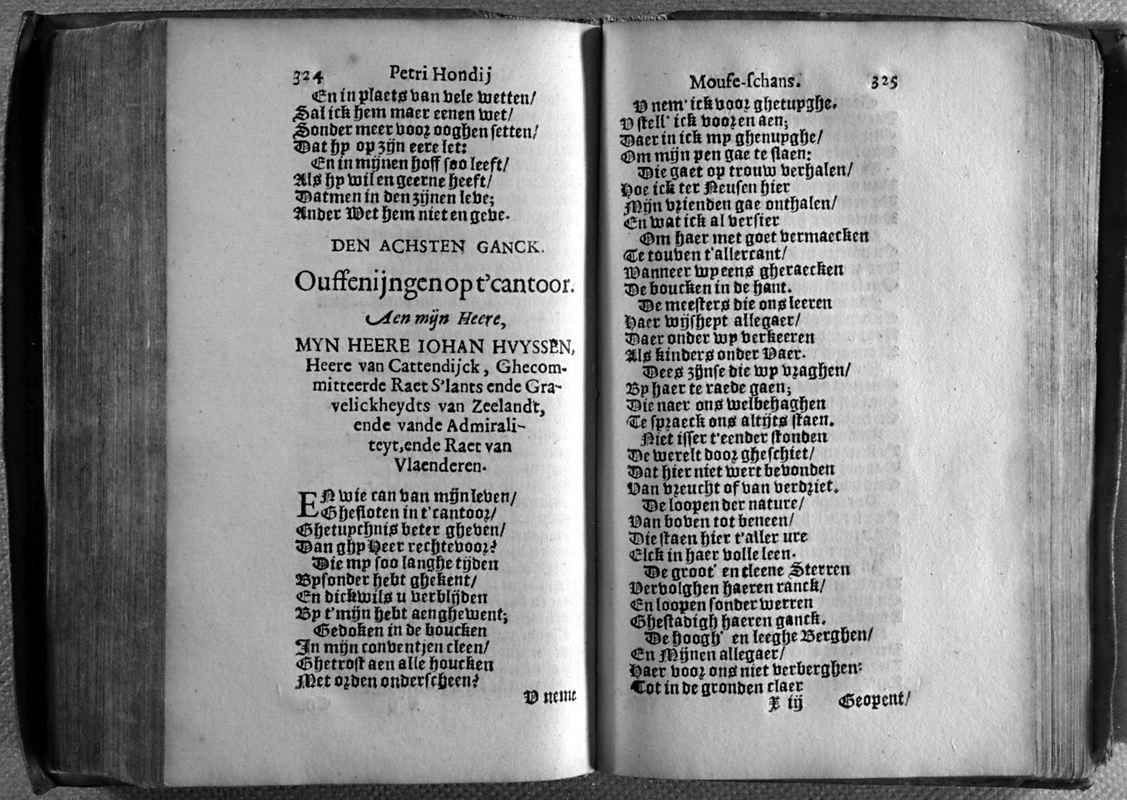 324 Petri Hondij
En in plaets van vele wetten/
Sal ick hem maer eenen wet/
Sonder meer voor ooghen setten/
Dat hy op zijn eere let:
En in mijnen hoff soo leeft/
Als hy wil en geerne heeft/
Datmen in den zijnen leve;
Ander Wet hem niet en geve.
DEN ACHSTEN GANCK.
Ouffenijngen op t'cantoor.
Aen mijn Heere,
MYN HEERE IOHAN HVYSSEN,
Heere van Cattendijck, Ghecom-
mitteerde Raet S'lants ende Gra-
velickheydts van Zeelandt,
ende vande Admirali-
teyt, ende Raet van
Vlaenderen.
EN wie can van mijn leven/
Ghesloten in t'cantoor/
Ghetuychnis beter gheven/
Dan ghy Heer rechtevoor?
Die my soo langhe tijden
Bysonder hebt ghekent/
En dickwils u verblijden
By t'mijn hebt aenghewent;
Gedoken in de boucken
In mijn conventjen cleen/
Ghetrost aen alle houcken
Met orden onderscheen?
V neme
Mouse-schans. 325
V nem' ick voor ghetuyghe.
V stell' ick voor en aen;
Daer in ick my ghenuyghe/
Om mijn pen gae te slaen:
Die gaet op trouw verhalen/
Hoe ick ter Neusen hier
Mijn vrienden gae onthalen/
En wat ick al versier
Om haer met goet vermaecken
Te touven t'allercant/
Wanneer wy eens gheraecken
De boucken in de hant.
De meesters die ons leeren
Haer wijsheyt allegaer/
Daer onder wy verkeeren
Als kinders onder Vaer.
Dees zijnse die wy vraghen/
By haer te raede gaen;
Die naer ons welbehaghen
Te spraeck ons altijts staen.
Niet isser t'eender stonden
De werelt door gheschiet/
Dat hier niet wert bevonden
Van vreucht of van verdriet.
De loopen der nature/
Van boven tot beneen/
Die staen hier t'aller ure
Elck in haer volle leen.
De groot' en cleene Sterren
Vervolghen haeren ranck/
En loopen sonder werren
Ghestadigh haeren ganck.
De hoogh' en leeghe Berghen/
En Mijnen allegaer/
Haer voor ons niet verberghen:
Tot in de gronden claer
X iij Geopent/